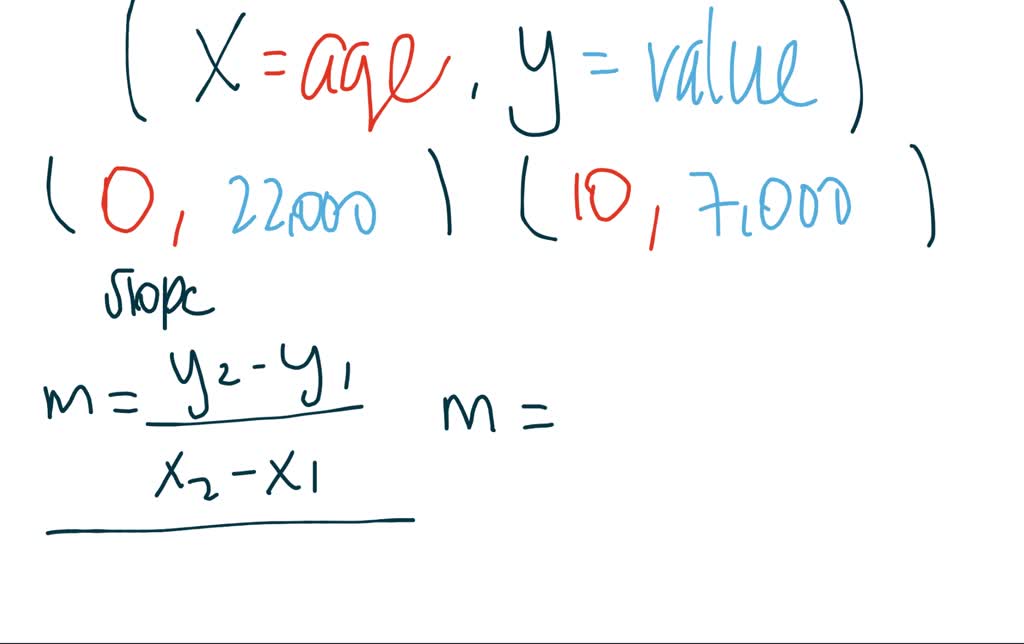 (x = age, y = value)
(0, 22,000) (10, 7,000)
slope
m = y₂ - y₁ / x₂ - x₁ m =